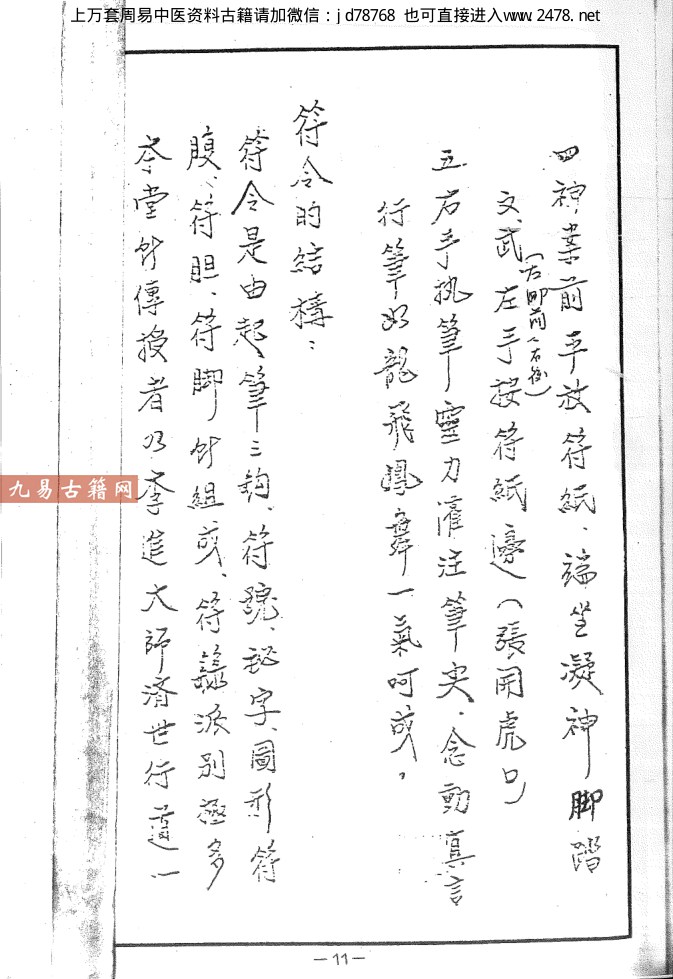 上万套周易中医资料古籍请加微信：jd78768 也可直接进入www.2478.net
四神案前平放符紙、端坐凝神脚踏
文、武左手按符紙邊（張開虎口）
五右手执筆靈力灌注筆尖、念動真言
行筆如龍飛鳳舞一氣呵成，
符令的結構：
符令是由起筆三鈎、符號、秘字、圖形符
腹、符胆、符脚所組成、符籙派別極多
本堂所傳授者乃李進大師濟世行道一
九易古籍网
－11－